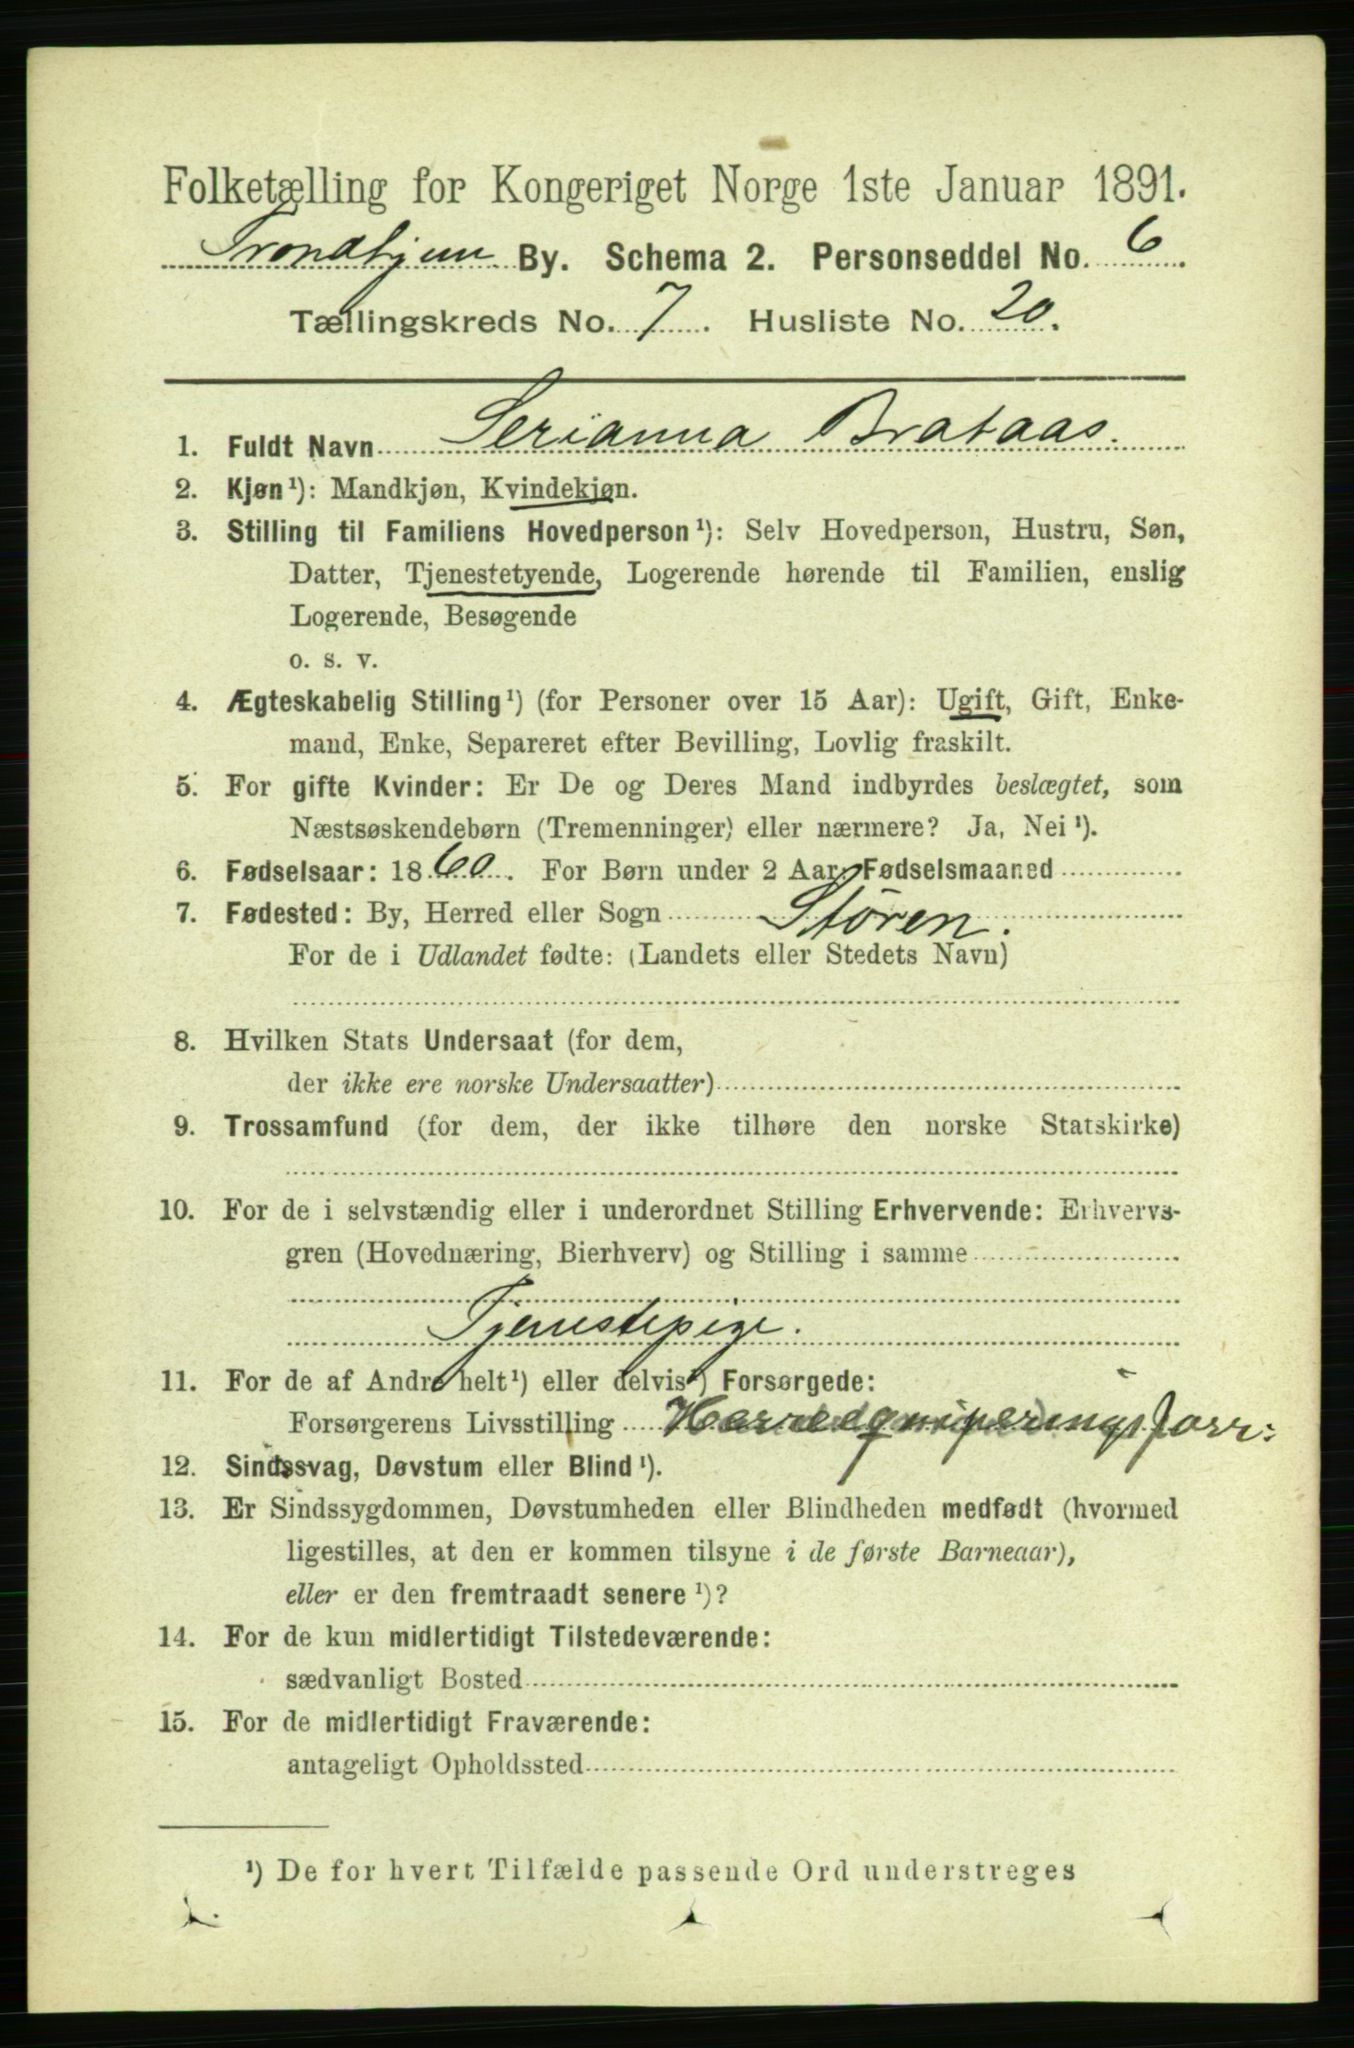 Folketælling for Kongeriget Norge 1ste Januar 1891.
Trondhjem By. Schema 2. Personseddel No. 6
Tællingskreds No. 7. Husliste No. 20.
1. Fuldt Navn Serianna Brataas.
2. Kjøn¹): Mandkjøn, Kvindekjøn.
3. Stilling til Familiens Hovedperson¹): Selv Hovedperson, Hustru, Søn,
Datter, Tjenestetyende, Logerende hørende til Familien, enslig
Logerende, Besøgende
o. s. v.
4. Ægteskabelig Stilling¹) (for Personer over 15 Aar): Ugift, Gift, Enke-
mand, Enke, Separeret efter Bevilling, Lovlig fraskilt.
5. For gifte Kvinder: Er De og Deres Mand indbyrdes beslægtet, som
Næstsøskendebørn (Tremenninger) eller nærmere? Ja, Nei¹).
6. Fødselsaar: 1860. For Børn under 2 Aar: Fødselsmaaned
7. Fødested: By, Herred eller Sogn Støren.
For de i Udlandet fødte: (Landets eller Stedets Navn)
8. Hvilken Stats Undersaat (for dem,
der ikke ere norske Undersaatter)
9. Trossamfund (for dem, der ikke tilhøre den norske Statskirke)
10. For de i selvstændig eller i underordnet Stilling Erhvervende: Erhvervs-
gren (Hovednæring, Bierhverv) og Stilling i samme
Tjenestepige.
11. For de af Andre helt¹) eller delvis¹) Forsørgede:
Forsørgerens Livsstilling Herreequiperingsforr:
12. Sindssvag, Døvstum eller Blind¹).
13. Er Sindssygdommen, Døvstumheden eller Blindheden medfødt (hvormed
ligestilles, at den er kommen tilsyne i de første Barneaar),
eller er den fremtraadt senere¹)?
14. For de kun midlertidigt Tilstedeværende:
sædvanligt Bosted
15. For de midlertidigt Fraværende:
antageligt Opholdssted
¹) De for hvert Tilfælde passende Ord understreges